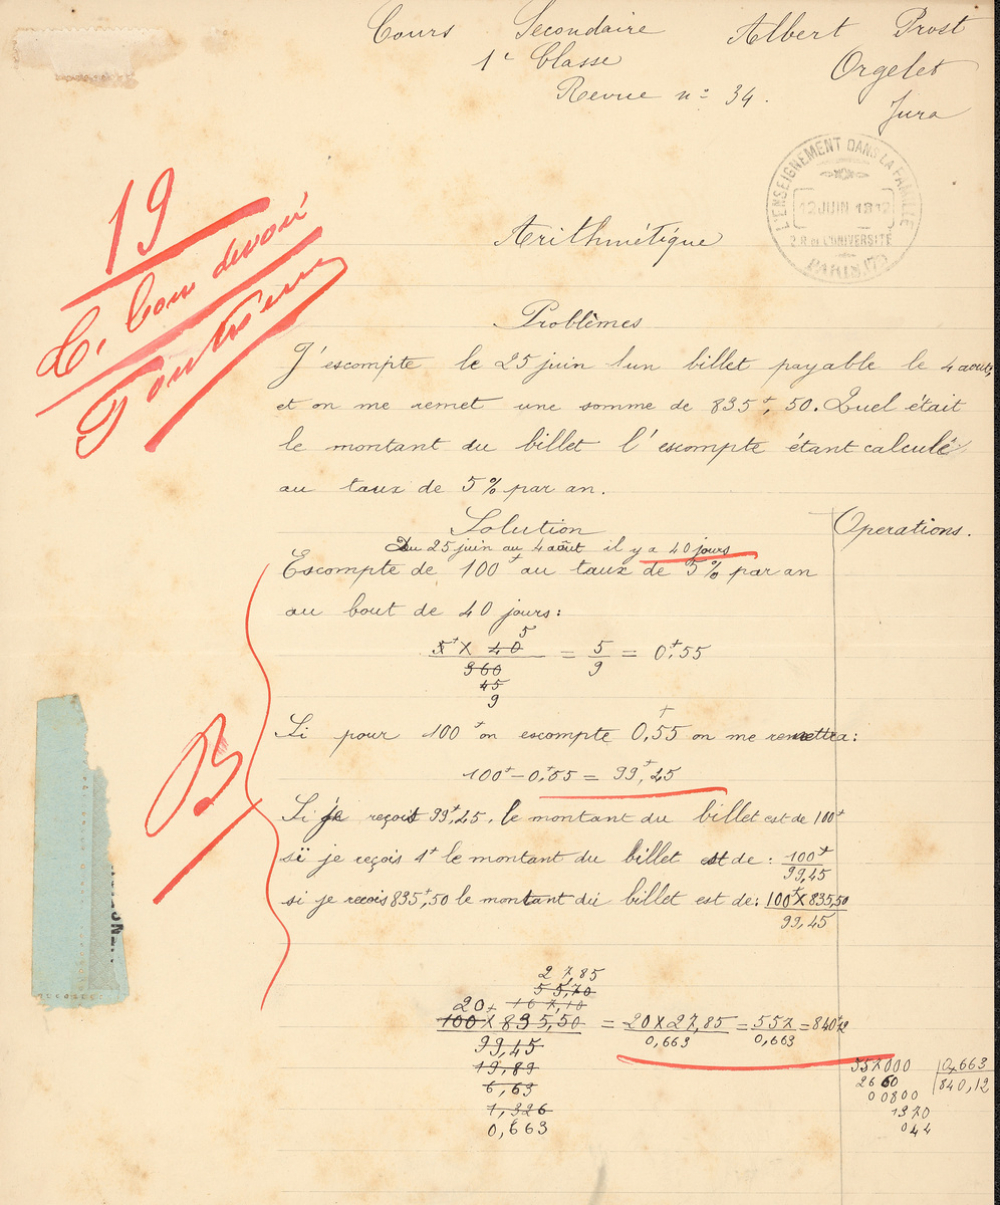 Cours Secondaire Albert Prost
1e Classe Orgelet
Revue no 34. Jura
L'ENSEIGNEMENT DANS LA FAMILLE
12 JUIN
2 R. DE L'UNIVERSITÉ
PARIS
19
Bon devoir
Arithmétique
Problèmes
J'escompte le 25 juin 1un billet payable le 4 août,
et on me remet une somme de 835f,50. Quel était
le montant du billet l'escompte étant calculé
au taux de 5% par an.
Solution
Operations.
Du 25 juin au 4 août il y a 40 jours
Escompte de 100f au taux de 5% par an
au bout de 40 jours:
5
5f X 40 = 5 = 0f,55
360 9
45
9
B
Si pour 100f on escompte 0f,55 on me remettra:
100f - 0f,55 = 99f,45
Si je reçois 99f,45, le montant du billet est de 100f
si je reçois 1f le montant du billet est de: 100f
99,45
si je reçois 835f,50 le montant du billet est de: 100f X 835,50
99,45
27,85
55,70
20 167,10
100 X 835,50 = 20 X 27,85 = 557 = 840f,12
99,45 0,663 0,663
19,89
6,63
1,326
0,663
557000 0,663
2660 840,12
00800
1370
044